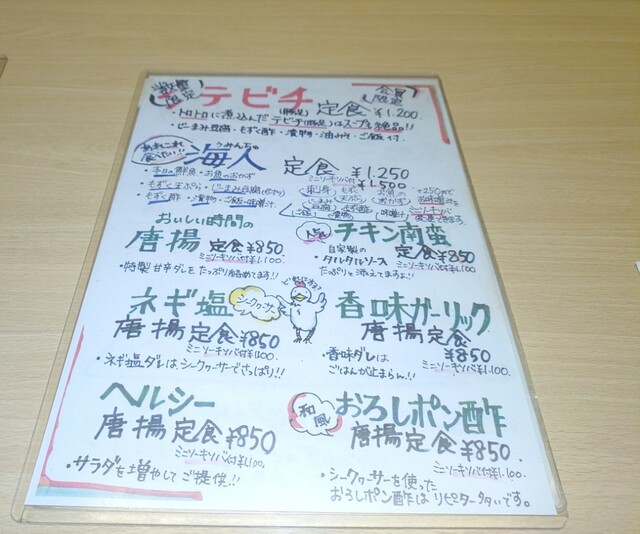 数量限定
テビチ(豚足)定食 ¥1,200
会員限定
・トロトロに煮込んだテビチ(豚足)はスープも絶品!!
・じーまみ豆腐・もずく酢・漬物・油みそ・ご飯付
あれもこれも食べたい!!
うみんちゅ
海人 定食 ¥1,250
ミニソーキソバ付 ¥1,500
・本日の鮮魚・お魚のおかず
・もずく天ぷら・じーまみ豆腐
・もずく酢・漬物・ご飯・味噌汁
+250円で
お味噌汁を
ミニソーキソバに
変更できます。
おいしい時間の
唐揚 定食 ¥850
ミニソーキソバ付¥1,100.
・特製 甘辛ダレをたっぷり絡めてます!!
人気
チキン南蛮
自家製の
タルタルソース
たっぷり添えてますよ!!
定食 ¥850
ミニソーキソバ付¥1,100.
ネギ塩
シークヮーサー
唐揚定食 ¥850
ミニソーキソバ付¥1,100
・ネギ塩ダレは、シークヮーサーでさっぱり!!
香味ガーリック
唐揚定食
¥850
ミニソーキソバ付¥1,100.
・香味ダレは
ごはんが止まらん!!
ヘルシー
唐揚定食 ¥850
ミニソーキソバ付¥1,100.
・サラダを増やしてご提供!!
和風
おろしポン酢
唐揚定食 ¥850
ミニソーキソバ付¥1,100.
・シークヮーサーを使った
おろしポン酢はリピーター多いです。